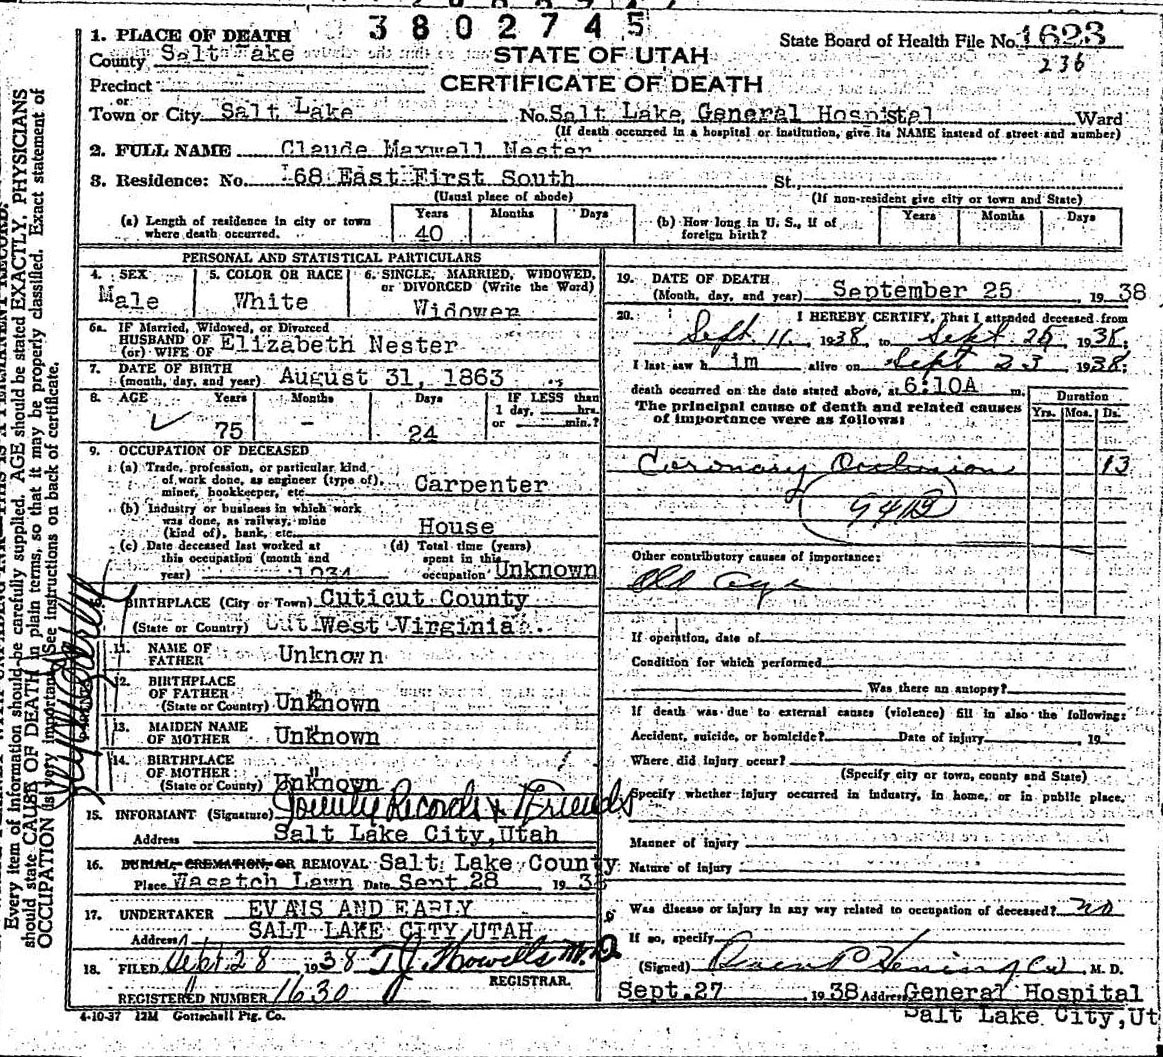 3802745
1. PLACE OF DEATH
State Board of Health File No. 1623
County Salt Lake
STATE OF UTAH
236
Precinct
CERTIFICATE OF DEATH
or
Town or City Salt Lake No. Salt Lake General Hospital Ward
(If death occurred in a hospital or institution, give its NAME instead of street and number)
2. FULL NAME Claude Maxwell Nester
3. Residence: No. 168 East First South St.
(Usual place of abode) (If non-resident give city or town and State)
(a) Length of residence in city or town where death occurred. Years 40 Months Days
(b) How long in U. S., if of foreign birth? Years Months Days
PERSONAL AND STATISTICAL PARTICULARS
4. SEX 5. COLOR OR RACE 6. SINGLE, MARRIED, WIDOWED,
or DIVORCED (Write the Word)
Male White Widower
6a. IF Married, Widowed, or Divorced
HUSBAND OF
(or) WIFE OF Elizabeth Nester
7. DATE OF BIRTH
(month, day, and year) August 31, 1863
8. AGE Years Months Days IF LESS than
1 day, hrs.
or min.?
75 - 24
9. OCCUPATION OF DECEASED
(a) Trade, profession, or particular kind
of work done, as engineer (type of),
miner, bookkeeper, etc. Carpenter
(b) Industry or business in which work
was done, as railway, mine
(kind of), bank, etc. House
(c) Date deceased last worked at
this occupation (month and
year) 1934
(d) Total time (years)
spent in this
occupation Unknown
10. BIRTHPLACE (City or Town) Cuticut County
(State or Country) West Virginia
11. NAME OF
FATHER Unknown
12. BIRTHPLACE
OF FATHER
(State or Country) Unknown
13. MAIDEN NAME
OF MOTHER Unknown
14. BIRTHPLACE
OF MOTHER
(State or County) Unknown
15. INFORMANT (Signature) County Records & Friends
Address Salt Lake City, Utah
16. BURIAL, CREMATION, OR REMOVAL Salt Lake County
Place Wasatch Lawn Date Sept 28 1938
17. UNDERTAKER EVANS AND EARLY
Address SALT LAKE CITY UTAH
18. FILED Sept 28 1938 T J Howells M.D.
REGISTRAR.
REGISTERED NUMBER 1630
4-10-37 12M Gottschall Ptg. Co.
19. DATE OF DEATH
(Month, day, and year) September 25, 1938
20. I HEREBY CERTIFY, That I attended deceased from
Sept. 11, 1938, to Sept 25, 1938;
I last saw him alive on Sept 23 1938;
death occurred on the date stated above, at 6:10A m.
The principal cause of death and related causes
of importance were as follows:
Duration
Yrs. Mos. Ds.
Coronary Occlusion 13
Other contributory causes of importance:
Old age
If operation, date of
Condition for which performed
Was there an autopsy?
If death was due to external causes (violence) fill in also the following:
Accident, suicide, or homicide? Date of injury 19
Where did injury occur?
(Specify city or town, county and State)
Specify whether injury occurred in industry, in home, or in public place.
Manner of injury
Nature of injury
Was disease or injury in any way related to occupation of deceased? no
If so, specify
(Signed) M. D.
Sept. 27 1938 Address General Hospital
Salt Lake City, Ut
Every item of information should be carefully supplied. AGE should be stated EXACTLY. PHYSICIANS
should state CAUSE OF DEATH in plain terms, so that it may be properly classified. Exact statement of
OCCUPATION is very important. See instructions on back of certificate.